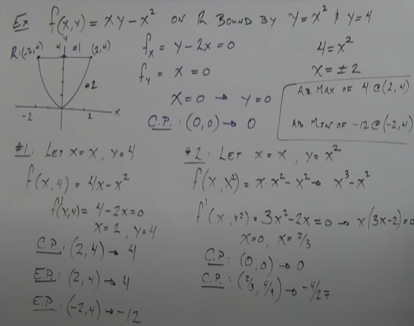 Ex f(x,y) = xy - x² ON R BOUND BY y = x² & y = 4
R: (-2,4) 4 #1 (2,4)
y
#2
-2 2 x
f_x = y - 2x = 0
f_y = x = 0
x = 0 → y = 0
C.P.: (0,0) → 0
4 = x²
x = ± 2
AB MAX OF 4 @ (2,4)
AB MIN OF -12 @ (-2,4)
#1: LET x = x, y = 4
f(x,4) = 4x - x²
f'(x,4) = 4 - 2x = 0
x = 2, y = 4
C.P.: (2,4) → 4
E.P.: (2,4) → 4
E.P.: (-2,4) → -12
#2: LET x = x, y = x²
f(x,x²) = x·x² - x² → x³ - x²
f'(x,x²) = 3x² - 2x = 0 → x(3x-2) = 0
x = 0, x = 2/3
C.P.: (0,0) → 0
C.P.: (2/3, 4/9) → -4/27